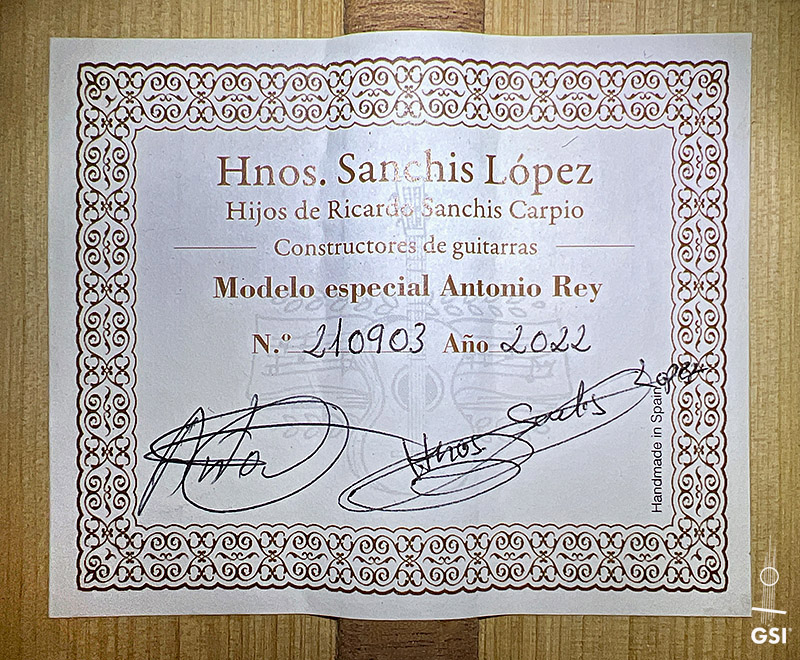 Hnos. Sanchis López
Hijos de Ricardo Sanchis Carpio
Constructores de guitarras
Modelo especial Antonio Rey
N.º 210903 Año 2022
Hnos Sanchis López
Handmade in Spain
GSI